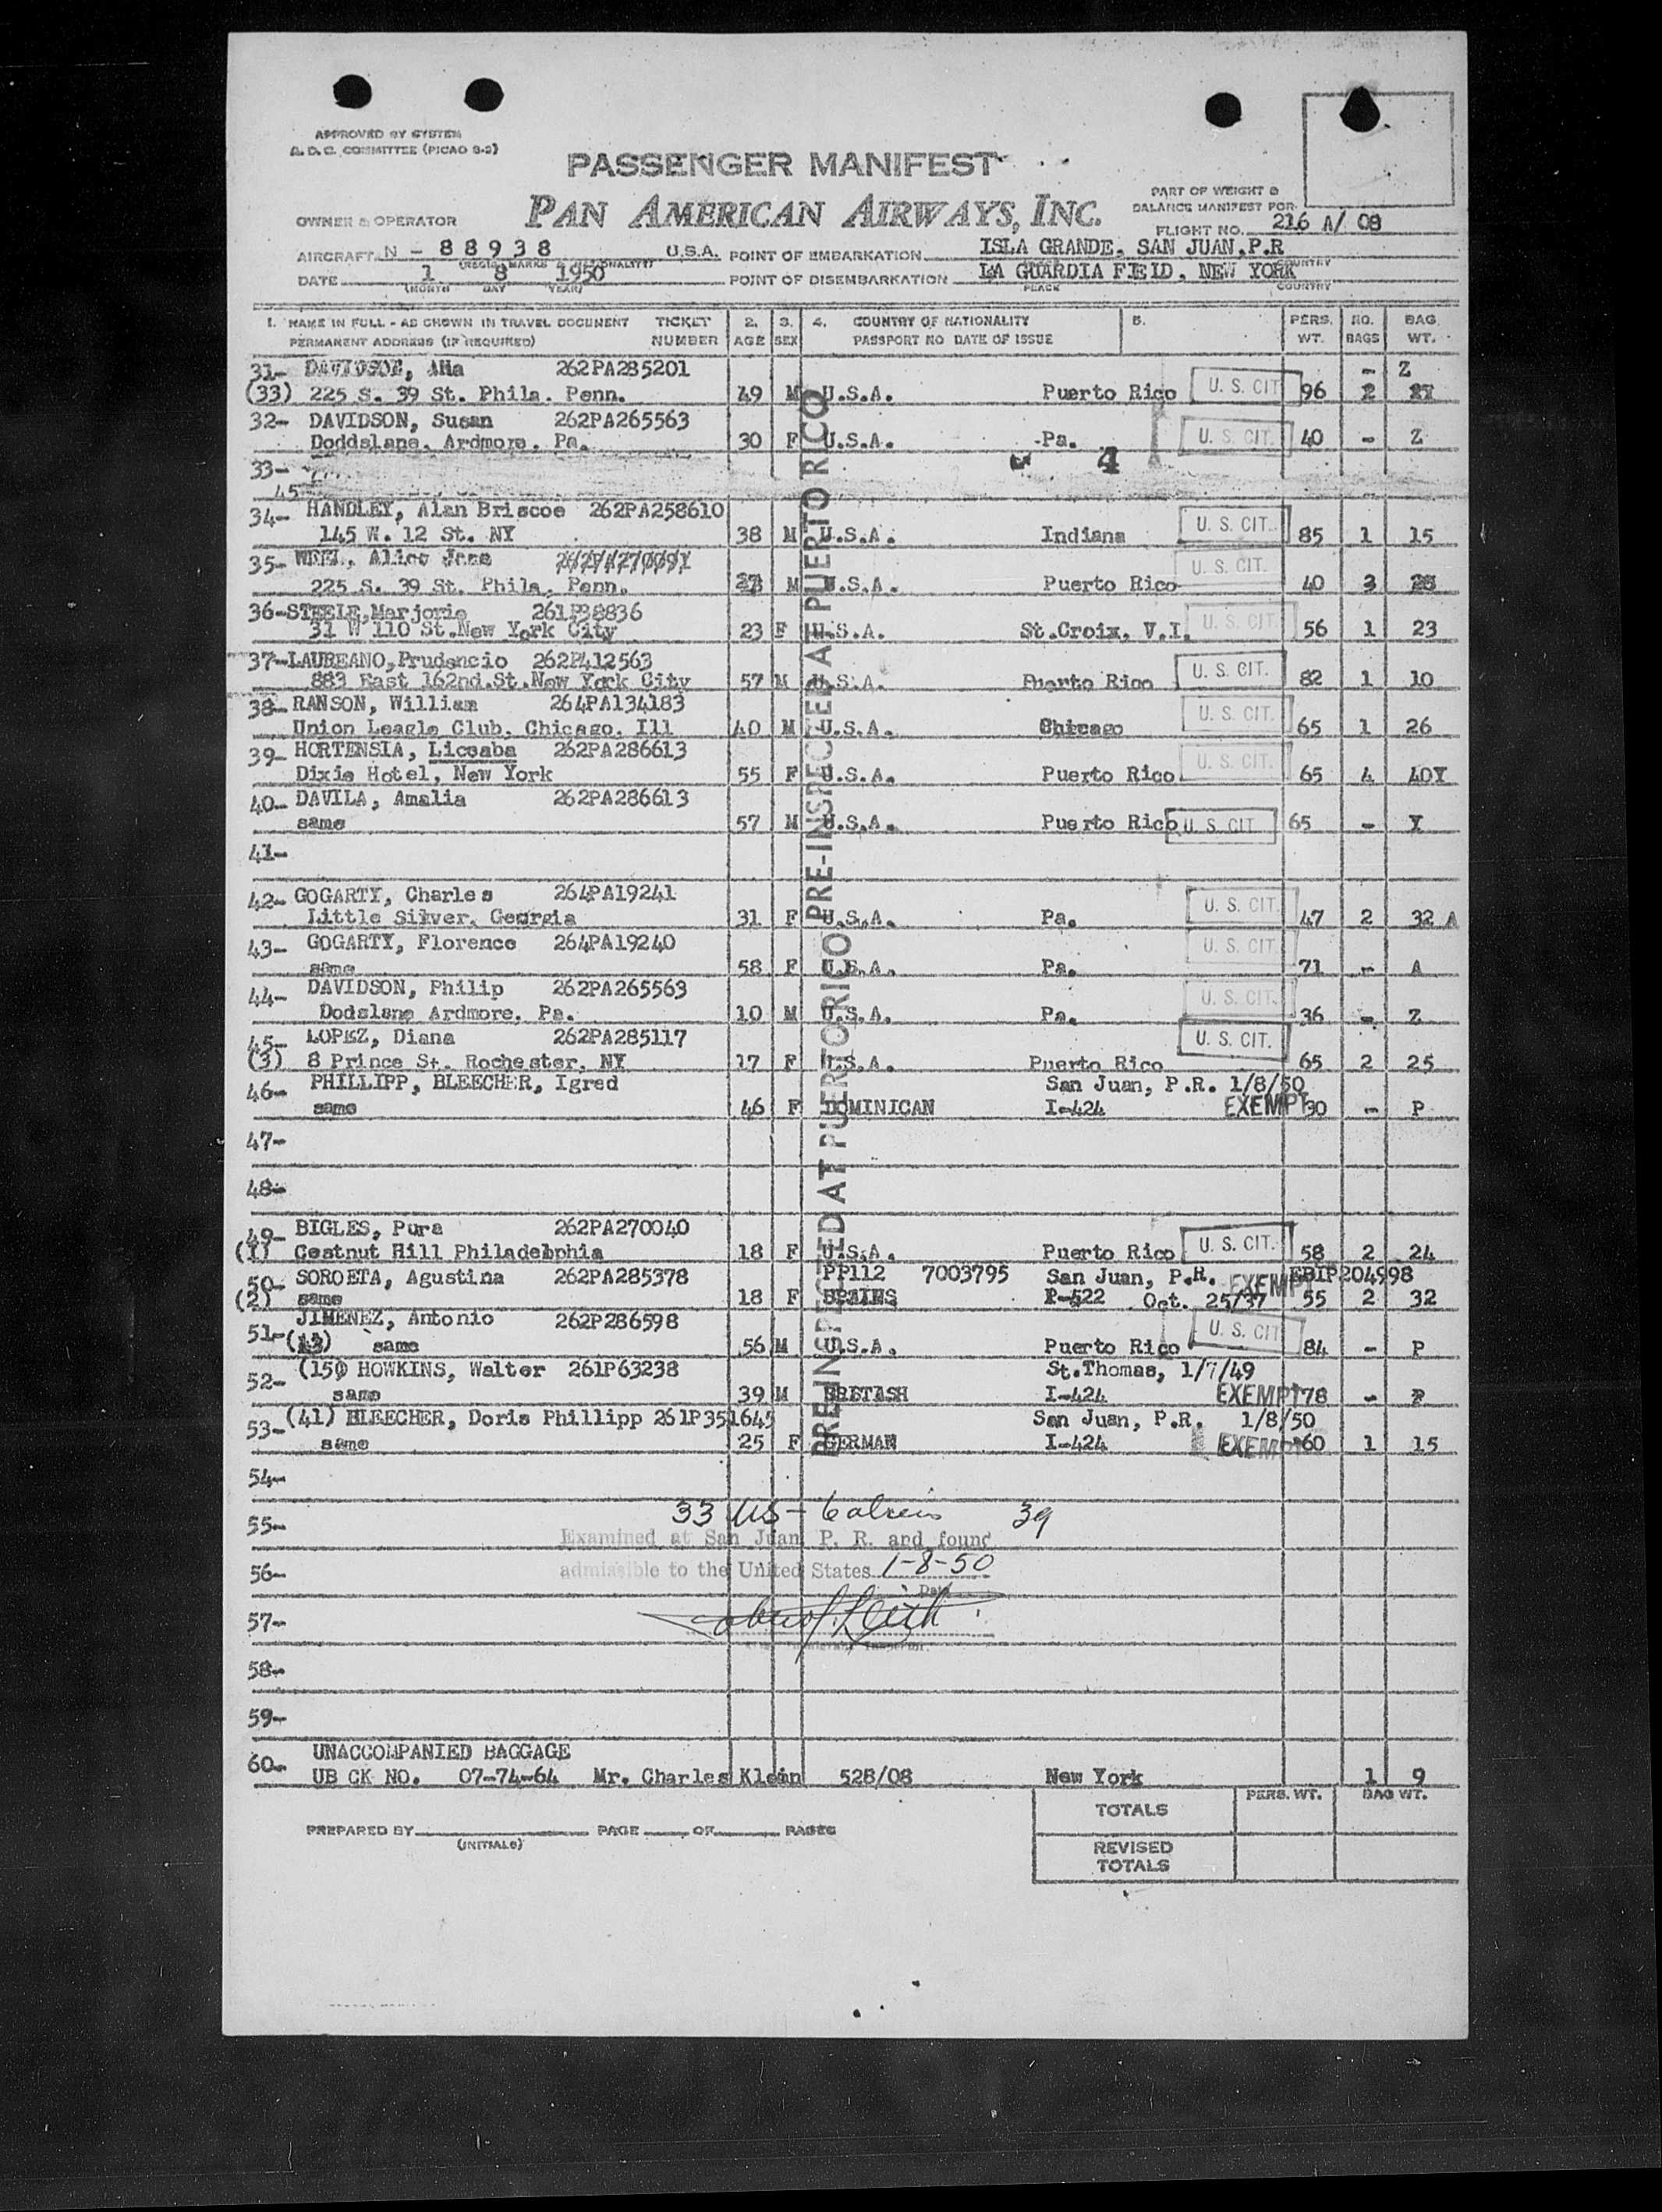 APPROVED BY SYSTEM
A. D. C. COMMITTEE (PICAO 9-2)
PASSENGER MANIFEST
PART OF WEIGHT &
BALANCE MANIFEST FOR
OWNER & OPERATOR PAN AMERICAN AIRWAYS, INC.
FLIGHT NO. 216 A/ 08
AIRCRAFT N - 88938 U.S.A. POINT OF EMBARKATION ISLA GRANDE, SAN JUAN, P.R
(REGIS. MARKS & NATIONALITY) COUNTRY
DATE 1 8 1950 POINT OF DISEMBARKATION LA GUARDIA FIELD, NEW YORK
(MONTH DAY YEAR) PLACE COUNTRY
1. NAME IN FULL - AS SHOWN IN TRAVEL DOCUMENT TICKET 2. 3. 4. COUNTRY OF NATIONALITY 5. PERS. NO. BAG
PERMANENT ADDRESS (IF REQUIRED) NUMBER AGE SEX PASSPORT NO DATE OF ISSUE WT. BAGS WT.
31- DAVIDSON, 262PA285201 - Z
(33) 225 S. 39 St. Phila. Penn. 49 M U.S.A. Puerto Rico U. S. CIT 96 2
32- DAVIDSON, Susan 262PA265563
Doddslane, Ardmore, Pa. 30 F U.S.A. Pa. U. S. CIT. 40 - Z
4
33-
45
34- HANDLEY, Alan Briscoe 262PA258610
145 W. 12 St. NY 38 M U.S.A. Indiana U. S. CIT. 85 1 15
35- Alice
225 S. 39 St. Phila, Penn. M U.S.A. Puerto Rico U. S. CIT. 40 3
36-STEELE,Marjorie 261P38836
31 W 110 St.New York City 23 F U.S.A. St.Croix, V.I. U. S. CIT 56 1 23
37-LAUREANO,Prudencio 262P412563
883 East 162nd.St.New York City 57 M U.S.A. Puerto Rico U. S. CIT. 82 1 10
38- RANSON, William 264PA134183
Union Leagle Club, Chicago, Ill 40 M U.S.A. Chicago U. S. CIT. 65 1 26
39- HORTENSIA, Licsaba 262PA286613
Dixie Hotel, New York 55 F U.S.A. Puerto Rico U. S. CIT. 65 4 40Y
40- DAVILA, Amalia 262PA286613
same 57 M U.S.A. Puerto Rico U. S. CIT 65 - Y
41-
42- GOGARTY, Charles 264PA19241
Little Silver, Georgia 31 F U.S.A. Pa. U. S. CIT 47 2 32 A
43- GOGARTY, Florence 264PA19240
same 58 F U.S.A. Pa. U. S. CIT 71 - A
44- DAVIDSON, Philip 262PA265563
Dodslane Ardmore, Pa. 10 M U.S.A. Pa. U. S. CIT. 36 - Z
45- LOPEZ, Diana 262PA285117
(3) 8 Prince St. Rochester, NY 17 F U.S.A. Puerto Rico U. S. CIT. 65 2 25
46- PHILLIPP, BLEECHER, Igred San Juan, P.R. 1/8/50
same 46 F DOMINICAN I-424 EXEMPT 90 - P
47-
48-
49- BIGLES, Pura 262PA270040
(1) Cestnut Hill Philadelphia 18 F U.S.A. Puerto Rico U. S. CIT. 58 2 24
50- SOROETA, Agustina 262PA285378 PP112 7003795 San Juan, P.R. EBIP204998
(2) same 18 F I-522 Oct. 25/37 EXEMPT 55 2 32
JIMENEZ, Antonio 262P286598
51- same 56 M U.S.A. Puerto Rico U. S. CIT 84 - P
(15) HOWKINS, Walter 261P63238 St.Thomas, 1/7/49
52- same 39 M BRITISH I-424 EXEMPT 78 - P
53- (41) BLEECHER, Doris Phillipp 261P351645 San Juan, P.R. 1/8/50
same 25 F GERMAN I-424 EXEMPT 60 1 15
PRE-INSPECTED AT PUERTO RICO
PRE-INSPECTED AT PUERTO RICO
54-
33 US - 6 aliens 39
55-
Examined at San Juan P. R. and found
56- admissible to the United States 1-8-50
Date
57-
58-
59-
60- UNACCOMPANIED BAGGAGE
UB CK NO. 07-74-64 Mr. Charles Klein 528/08 New York 1 9
TOTALS PERS. WT. BAG WT.
PREPARED BY PAGE OF PAGES
(INITIALS)
REVISED
TOTALS